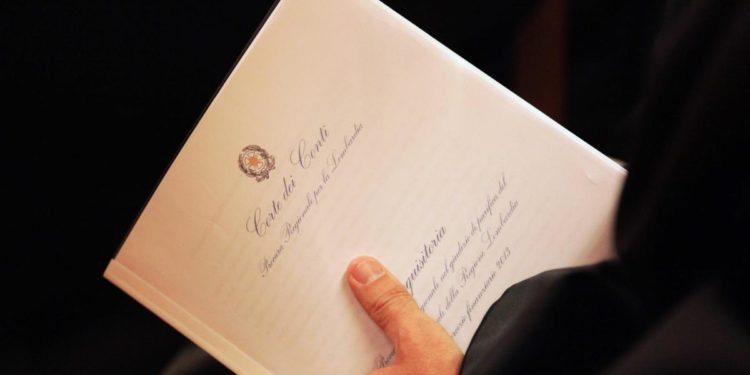 Corte dei Conti
Procura Regionale per la Lombardia
quisitoria
nel giudizio di parifica del
della Regione Lombardia
finanziario 2013